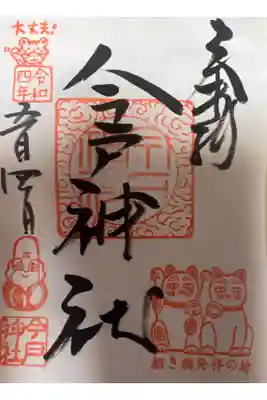 奉拝
今戸神社
大丈夫。
令和
四年
五月四日
今戸
神社
招き猫発祥の地